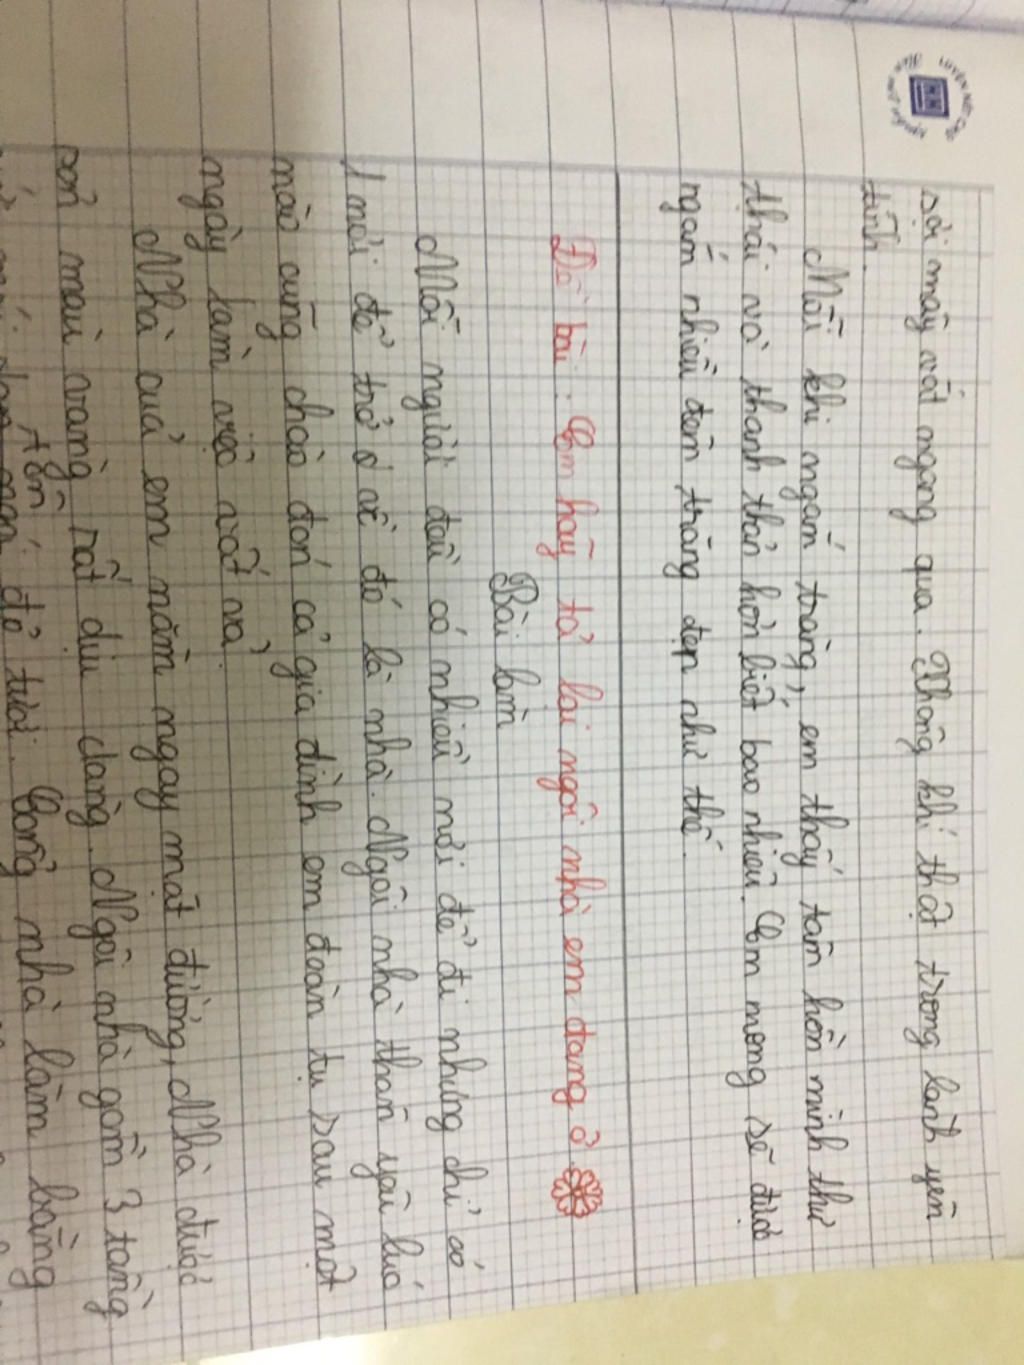 sợi mây vắt ngang qua. Không khí thật trong lành yên
tĩnh.
Mỗi khi ngắm trăng, em thấy tâm hồn mình thư
thái và thanh thản hơn biết bao nhiêu. Em mong sẽ được
ngắm nhiều đêm trăng đẹp như thế.
Đề bài : Em hãy tả lại ngôi nhà em đang ở
Bài làm
Mỗi người đều có nhiều nơi để đi nhưng chỉ có
1 nơi để trở về đó là nhà. Ngôi nhà thân yêu lúc
nào cũng chào đón cả gia đình em đoàn tụ sau một
ngày làm việc vất vả.
Nhà của em nằm ngay mặt đường, Nhà được
sơn màu vàng rất dịu dàng. Ngôi nhà gồm 3 tầng
để tươi. Cổng nhà làm bằng